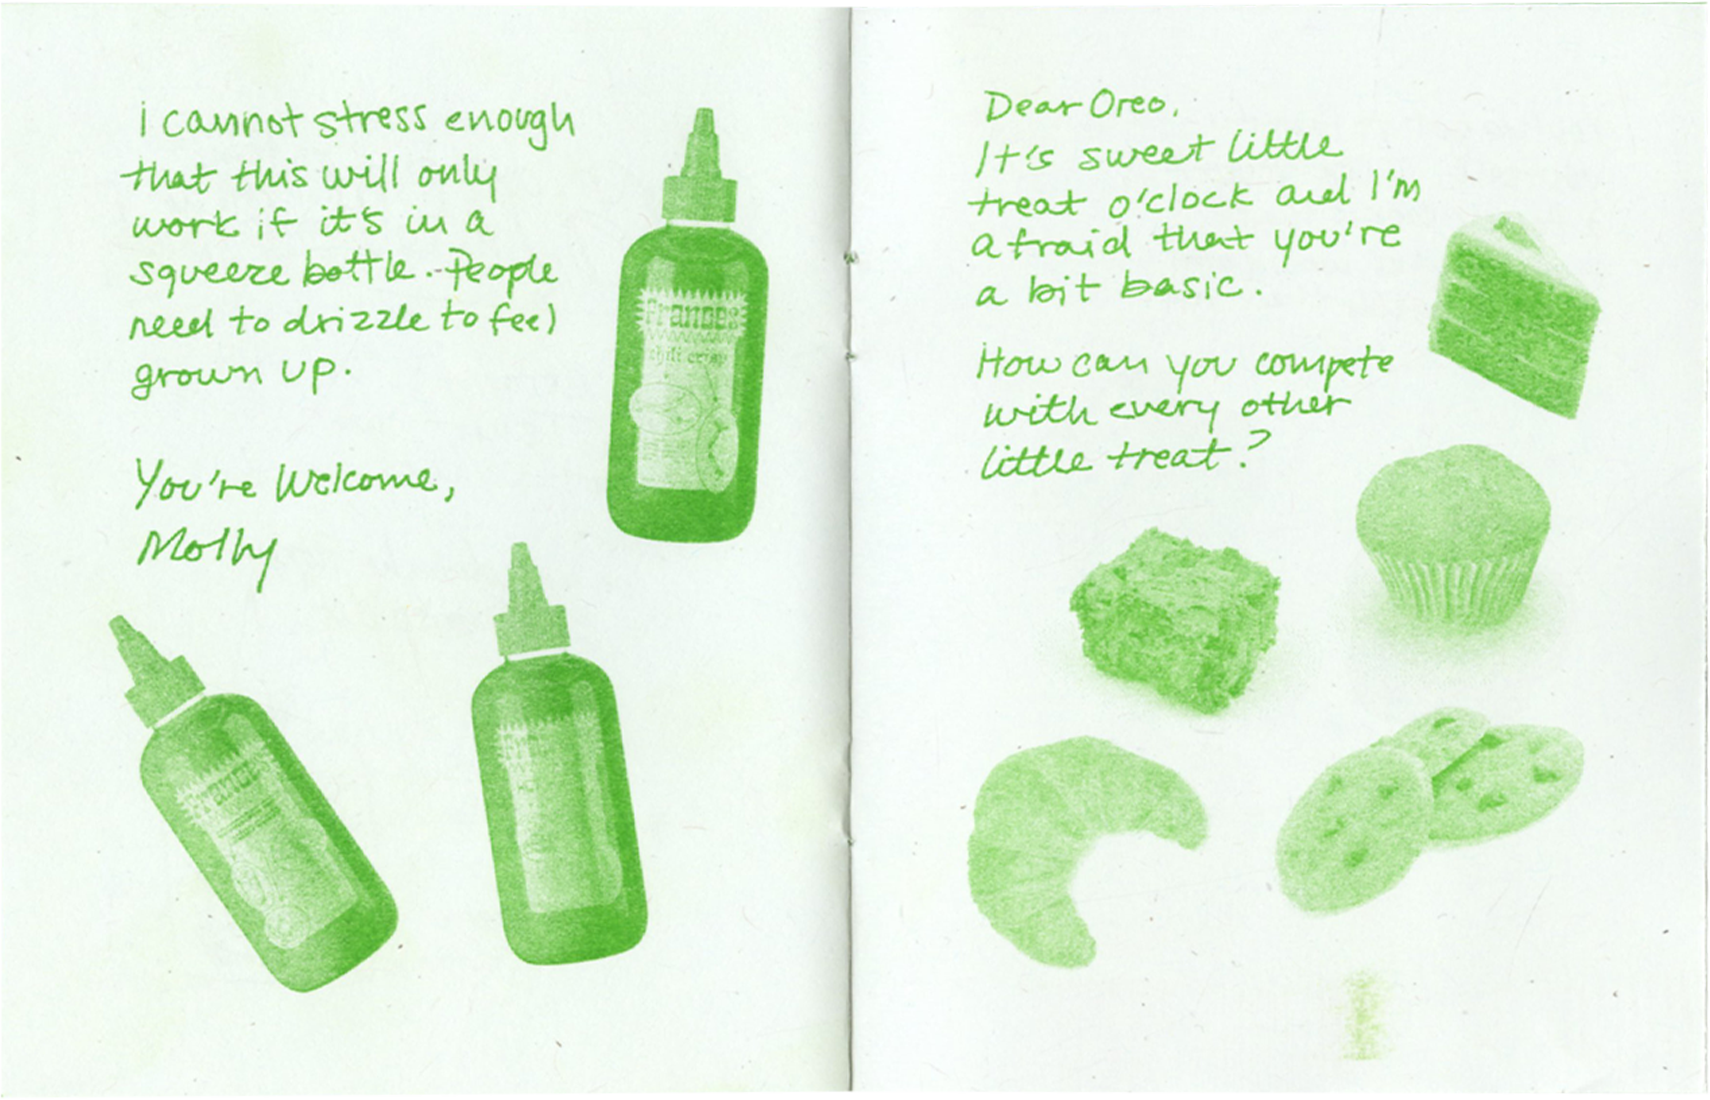 i cannot stress enough
that this will only
work if it's in a
squeeze bottle. People
need to drizzle to feel
grown up.
You're Welcome,
Molly
Frances
chili crisp
Frances
Dear Oreo,
It's sweet little
treat o'clock and I'm
afraid that you're
a bit basic.
How can you compete
with every other
little treat?